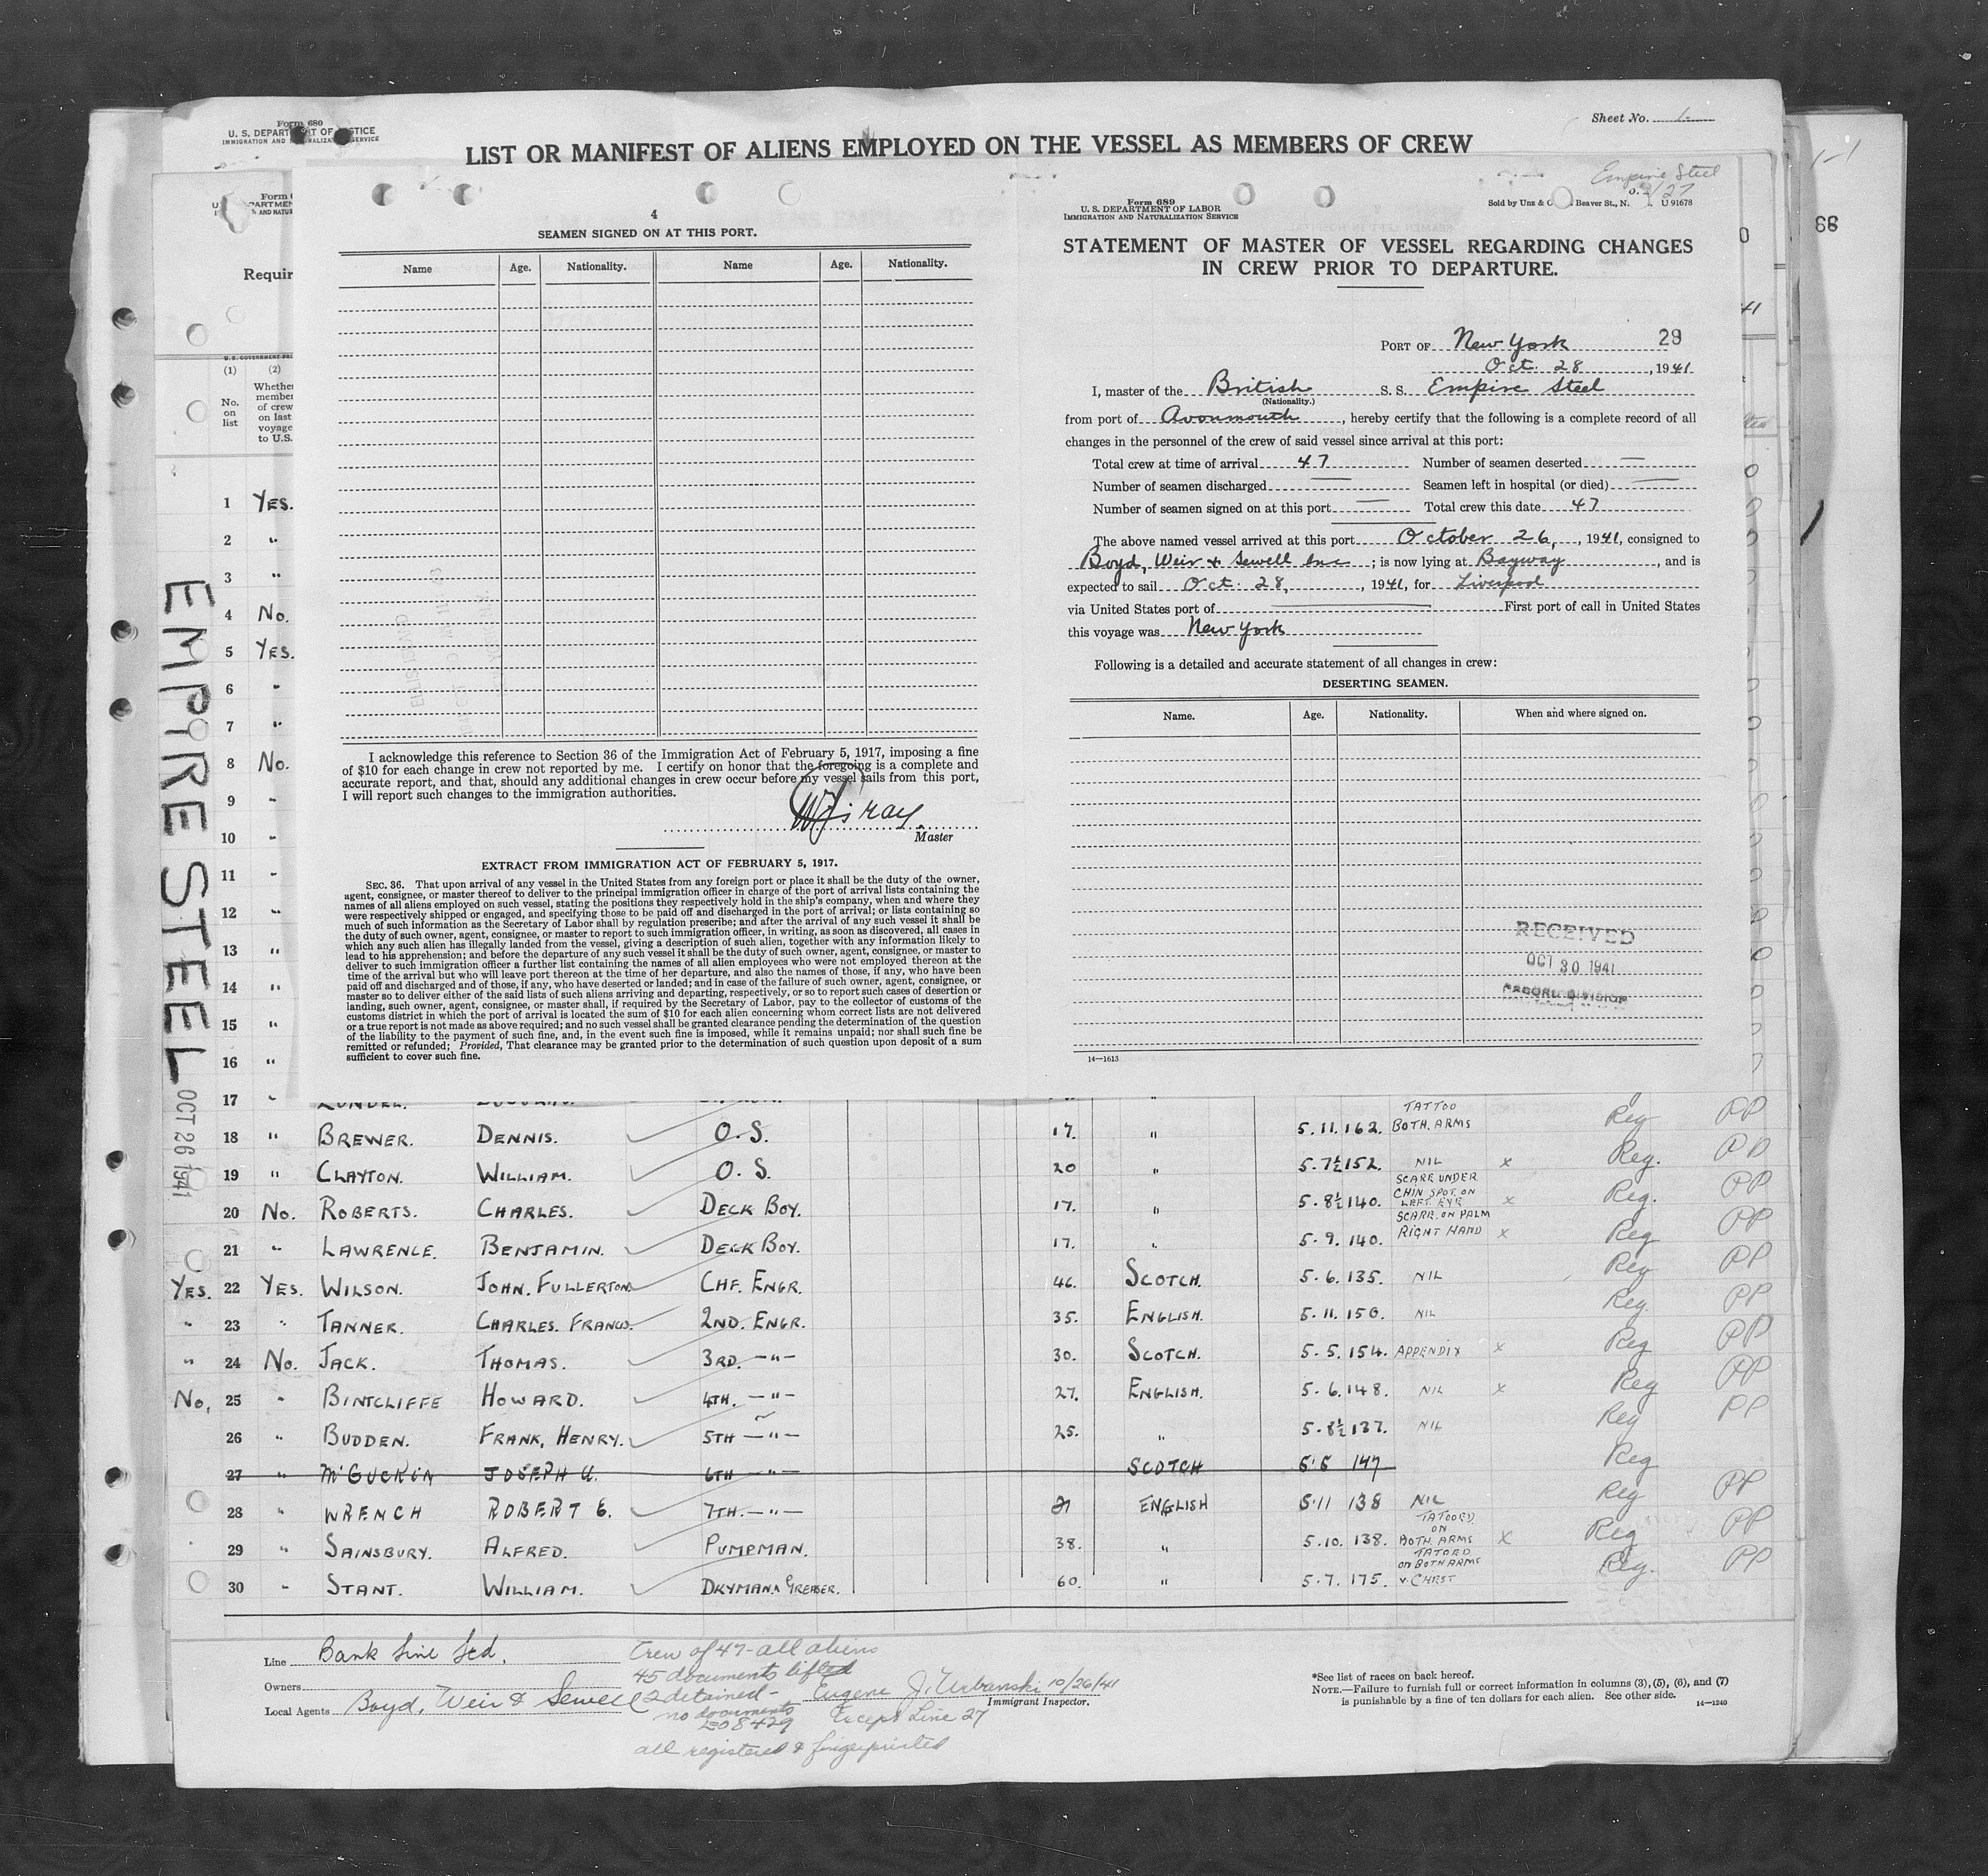 Form 680
U. S. DEPARTMENT OF JUSTICE
IMMIGRATION AND NATURALIZATION SERVICE
Sheet No. 1.
LIST OR MANIFEST OF ALIENS EMPLOYED ON THE VESSEL AS MEMBERS OF CREW
Requir
(1) (2)
No. on list
Whether
member
of crew
on last
voyage
to U.S.
1 YES.
2 "
3 "
4 No.
5 YES.
6 "
7 "
8 No.
9 "
10 "
11 "
12 "
13 "
14 "
15 "
16 "
EMPIRE STEEL
OCT 26 1941
4
SEAMEN SIGNED ON AT THIS PORT.
Name Age. Nationality. Name Age. Nationality.
I acknowledge this reference to Section 36 of the Immigration Act of February 5, 1917, imposing a fine
of $10 for each change in crew not reported by me. I certify on honor that the foregoing is a complete and
accurate report, and that, should any additional changes in crew occur before my vessel sails from this port,
I will report such changes to the immigration authorities.
Master
EXTRACT FROM IMMIGRATION ACT OF FEBRUARY 5, 1917.
SEC. 36. That upon arrival of any vessel in the United States from any foreign port or place it shall be the duty of the owner,
agent, consignee, or master thereof to deliver to the principal immigration officer in charge of the port of arrival lists containing the
names of all aliens employed on such vessel, stating the positions they respectively hold in the ship's company, when and where they
were respectively shipped or engaged, and specifying those to be paid off and discharged in the port of arrival; or lists containing so
much of such information as the Secretary of Labor shall by regulation prescribe; and after the arrival of any such vessel it shall be
the duty of such owner, agent, consignee, or master to report to such immigration officer, in writing, as soon as discovered, all cases in
which any such alien has illegally landed from the vessel, giving a description of such alien, together with any information likely to
lead to his apprehension; and before the departure of any such vessel it shall be the duty of such owner, agent, consignee, or master to
deliver to such immigration officer a further list containing the names of all alien employees who were not employed thereon at the
time of the arrival but who will leave port thereon at the time of her departure, and also the names of those, if any, who have been
paid off and discharged and of those, if any, who have deserted or landed; and in case of the failure of such owner, agent, consignee, or
master so to deliver either of the said lists of such aliens arriving and departing, respectively, or so to report such cases of desertion or
landing, such owner, agent, consignee, or master shall, if required by the Secretary of Labor, pay to the collector of customs of the
customs district in which the port of arrival is located the sum of $10 for each alien concerning whom correct lists are not delivered
or a true report is not made as above required; and no such vessel shall be granted clearance pending the determination of the question
of the liability to the payment of such fine, and, in the event such fine is imposed, while it remains unpaid; nor shall such fine be
remitted or refunded; Provided, That clearance may be granted prior to the determination of such question upon deposit of a sum
sufficient to cover such fine.
Empire Steel
Form 689
U. S. DEPARTMENT OF LABOR
IMMIGRATION AND NATURALIZATION SERVICE
Sold by Unz & Beaver St., N. U 91678
STATEMENT OF MASTER OF VESSEL REGARDING CHANGES
IN CREW PRIOR TO DEPARTURE.
PORT OF New York 29
Oct. 28, 1941
I, master of the British S. S. Empire Steel
(Nationality.)
from port of Avonmouth, hereby certify that the following is a complete record of all
changes in the personnel of the crew of said vessel since arrival at this port:
Total crew at time of arrival 47 Number of seamen deserted —
Number of seamen discharged — Seamen left in hospital (or died) —
Number of seamen signed on at this port — Total crew this date 47
The above named vessel arrived at this port October 26, 1941, consigned to
Boyd, Weir & Sewell Inc; is now lying at Bayway, and is
expected to sail Oct. 28, 1941, for Liverpool
via United States port of — First port of call in United States
this voyage was New York
Following is a detailed and accurate statement of all changes in crew:
DESERTING SEAMEN.
Name. Age. Nationality. When and where signed on.
RECEIVED
OCT 30 1941
RECORD DIVISION
14—1613
17 "
18 " BREWER. DENNIS. O.S. 17. " 5.11. 162. TATTOO BOTH. ARMS Reg PP
19 " CLAYTON. WILLIAM. O.S. 20 " 5.7½ 152. NIL x Reg. PP
20 No. ROBERTS. CHARLES. DECK BOY. 17. " 5.8½ 140. SCARE UNDER CHIN SPOT ON LEFT EYE x Reg. PP
21 " LAWRENCE. BENJAMIN. DECK BOY. 17. " 5.9. 140. SCARR. ON PALM RIGHT HAND x Reg PP
YES. 22 YES. WILSON. JOHN. FULLERTON. CHF. ENGR. 46. SCOTCH. 5.6. 135. NIL Reg PP
" 23 " TANNER. CHARLES. FRANCIS. 2ND. ENGR. 35. ENGLISH. 5.11. 150. NIL Reg. PP
" 24 No. JACK. THOMAS. 3RD. —"— 30. SCOTCH. 5.5. 154. APPENDIX x Reg PP
No. 25 " BINTCLIFFE HOWARD. 4TH. —"— 27. ENGLISH. 5.6. 148. NIL x Reg PP
26 " BUDDEN. FRANK, HENRY. 5TH —"— 25. " 5.8½ 137. NIL Reg PP
27 " McGUCKIN JOSEPH U. 6TH —"— SCOTCH 5.5 147 Reg
28 " WRENCH ROBERT E. 7TH. —"— 21 ENGLISH 5.11 138 NIL Reg PP
29 " SAINSBURY. ALFRED. PUMPMAN. 38. " 5.10. 138. TATOOED ON BOTH ARMS x Reg PP
30 " STANT. WILLIAM. DKYMAN & GREASER. 60. " 5.7. 175. TATOED ON BOTH ARMS & CHEST Reg. PP
Line Bank Line Ltd.
Owners
Local Agents Boyd, Weir & Sewell
Crew of 47 - all aliens
45 documents lifted
2 detained -
no documents
EO 8429
all registered & fingerprinted
Eugene J. Urbanski 10/26/41
Immigrant Inspector.
Except Line 27
*See list of races on back hereof.
NOTE.—Failure to furnish full or correct information in columns (3), (5), (6), and (7)
is punishable by a fine of ten dollars for each alien. See other side. 14—1240